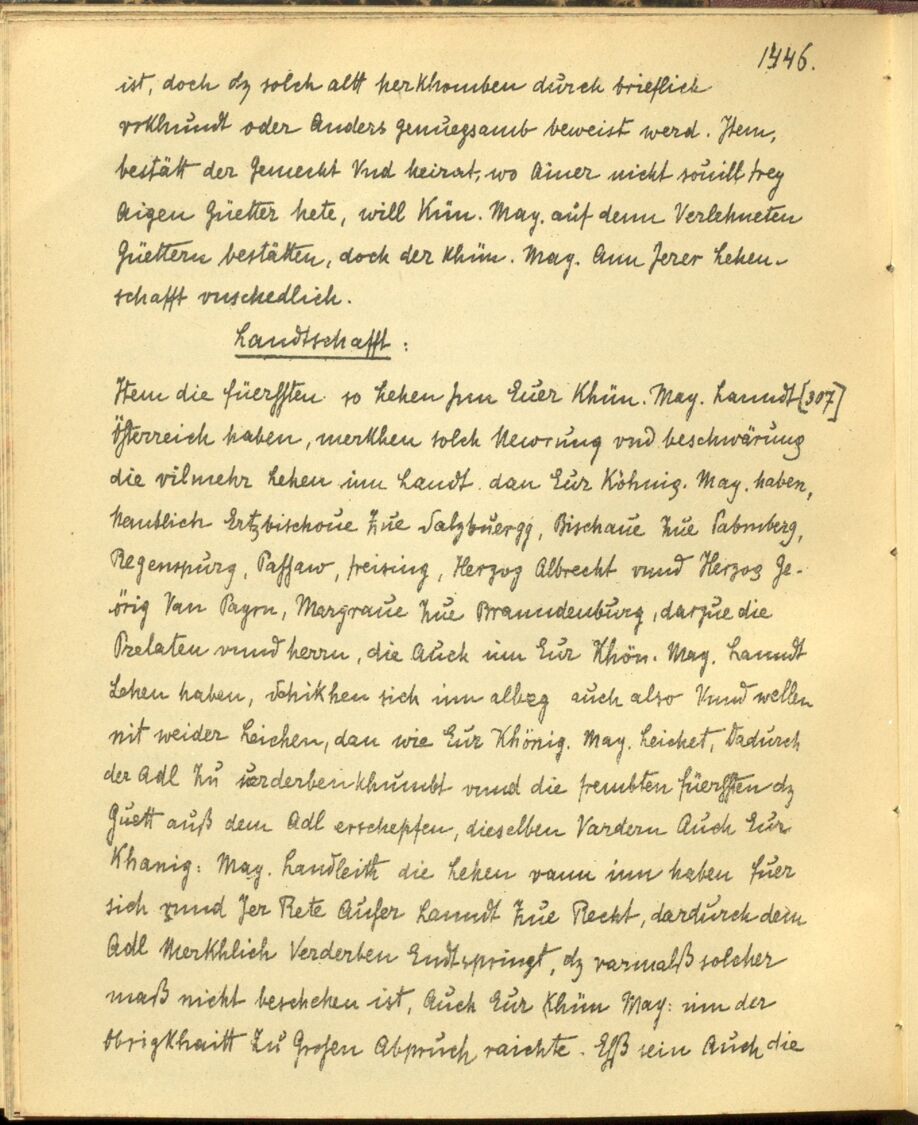 1446.
ist, doch dz solch altt herkhomben durch brieflich
vrkhundt oder Anders genuegsamb beweist werd. Item,
bestätt der Gemecht Vnd heirat, wo Ainer nicht souill frey
Aigen Güetter hete, will Kün. May. auf denn Verlehneten
Güettern bestätten, doch der khün. May. Ann Jerer Lehen-
schafft vnschedlich.
Landtschafft:
Item die füerfften so Lehen Jnn Euer Khün. May. Lanndt [307]
Österreich haben, merkhen solch Newrung vnd beschwärung
die vilmehr Lehen inn Landt dan Eur Köhnig. May. haben,
Nemblich Ertzbischoue Zue Salzbuergg, Bischaue Zue Pabmberg,
Regenspurg, Passaw, freising, Herzog Albrecht vnnd Herzog Ge-
örig Van Payrn, Margraue Zue Branndenburg, darzue die
Prelaten vnnd herrn, die Auch inn Eur Khön. May. Lanndt
Lehen haben, Schikhen sich inn allweg auch also Vnnd wellen
nit weider Leichen, dan wie Eur Khönig. May. Leichet, Dadurch
der Adl Zu verderben khumbt vnnd die frembten füerfften dz
Guett auß dem Adl erschepfen, dieselben Vardern Auch Eur
Khanig: May. Landleith die Lehen vann inn haben fuer
sich vnnd Jer Rete Aufer Lanndt Zue Recht, dardurch dem
Adl Merkhlich Verderben Endtspringt, dz varmalß solcher
maß nicht beschehen ist, Auch Eur Khün May: inn der
Obrigkhaitt Zu Grosen Abpruch raichte. Eß sein Auch die